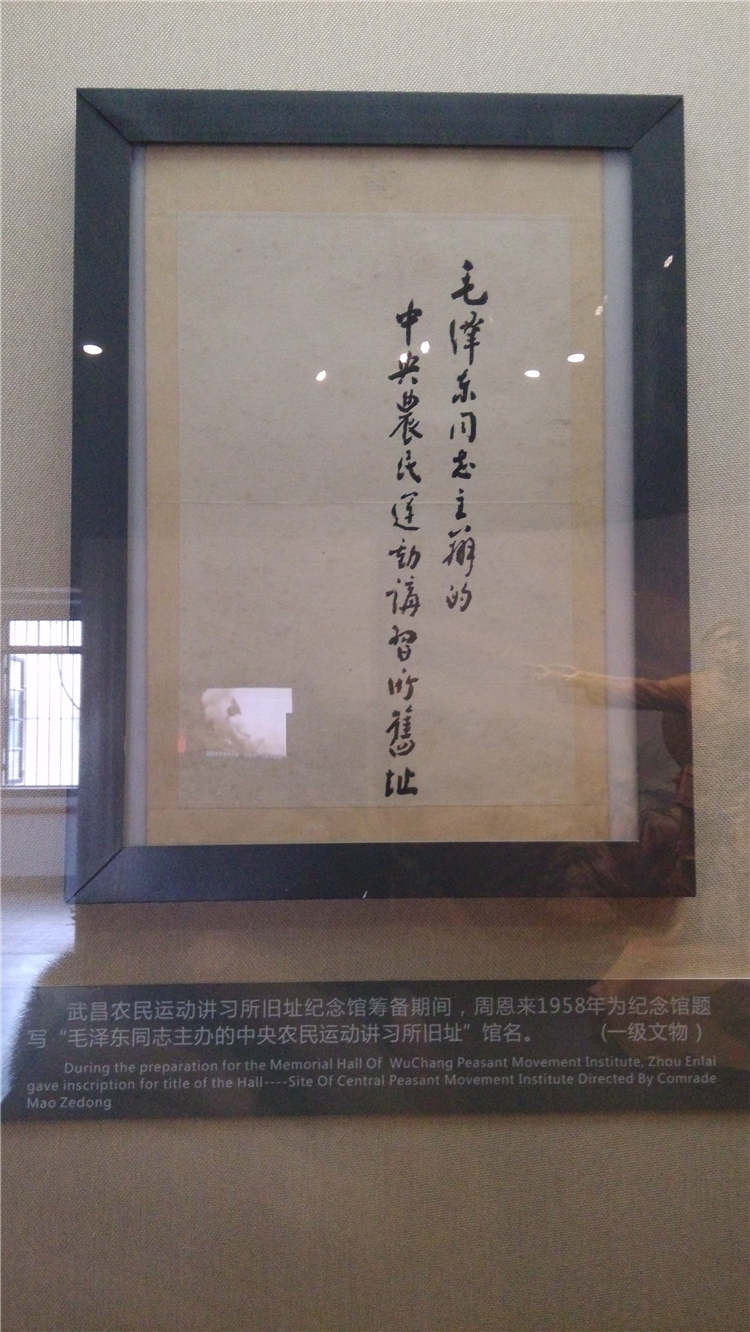 毛澤东同志主辦的
中央農民運动講習所舊址
武昌农民运动讲习所旧址纪念馆筹备期间，周恩来1958年为纪念馆题
写“毛泽东同志主办的中央农民运动讲习所旧址”馆名。 (一级文物)
During the preparation for the Memorial Hall Of WuChang Peasant Movement Institute, Zhou Enlai
gave inscription for title of the Hall----Site Of Central Peasant Movement Institute Directed By Comrade
Mao Zedong